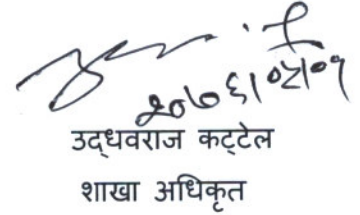 २०७६।०५।०१
उद्धवराज कट्टेल
शाखा अधिकृत